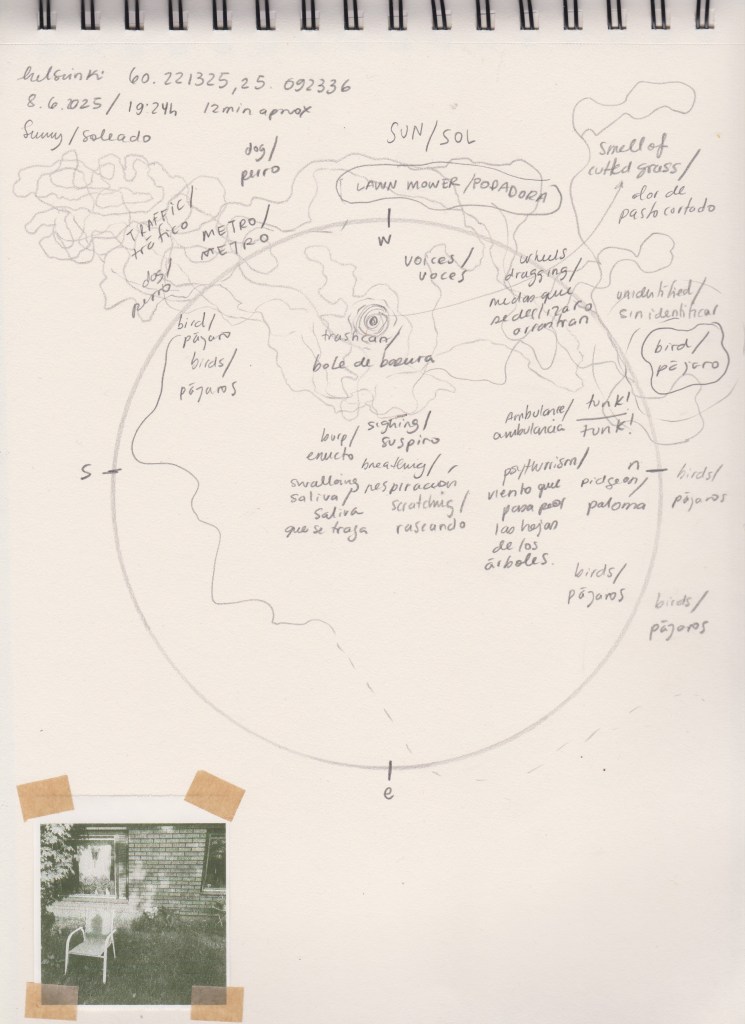 Helsinki 60.221325, 25.092336
8.6.2025 / 19:24h 12min aprox
Sunny / soleado
SUN / SOL
dog /
perro
LAWN MOWER / PODADORA
smell of
cutted grass /
olor de
pasto cortado
TRAFFIC /
tráfico
METRO /
METRO
W
voices /
voces
wheels
dragging /
ruedas que
se deslizan o
arrastran
dog /
perro
unidentified /
sin identificar
bird /
pájaro
bird /
pájaro
birds /
pájaros
trashcan /
bote de basura
burp /
eructo
sighing /
suspiro
ambulance /
ambulancia
tunk!
tunk!
S
swallowing
saliva /
saliva
que se traga
breathing /
respiración
scratching /
rascando
viento que
pasa por
las hojas
de los
árboles.
pidgeon /
paloma
n
birds /
pájaros
birds /
pájaros
birds /
pájaros
e